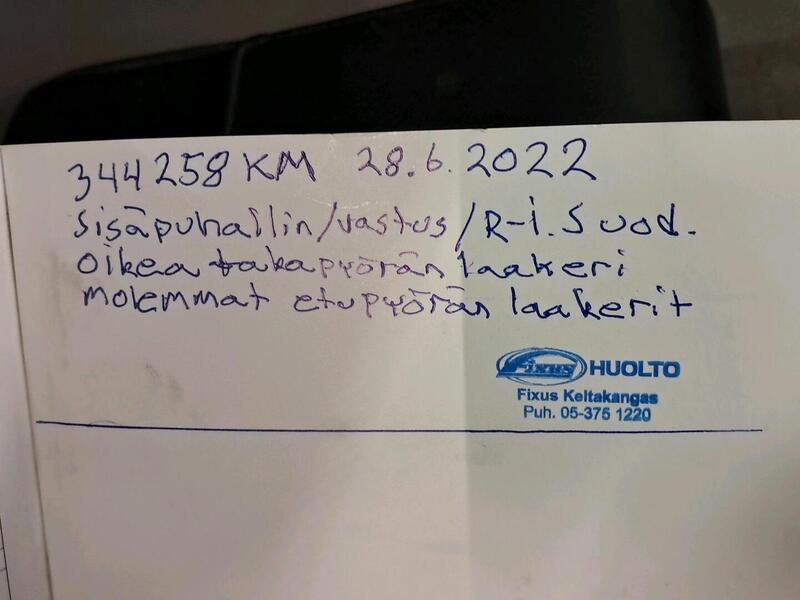 344 258 KM 28.6.2022
Sisäpuhallin/vastus/R-i.Suod.
Oikea takapyörän laakeri
molemmat etupyörän laakerit
Fixus HUOLTO
Fixus Keltakangas
Puh. 05-375 1220